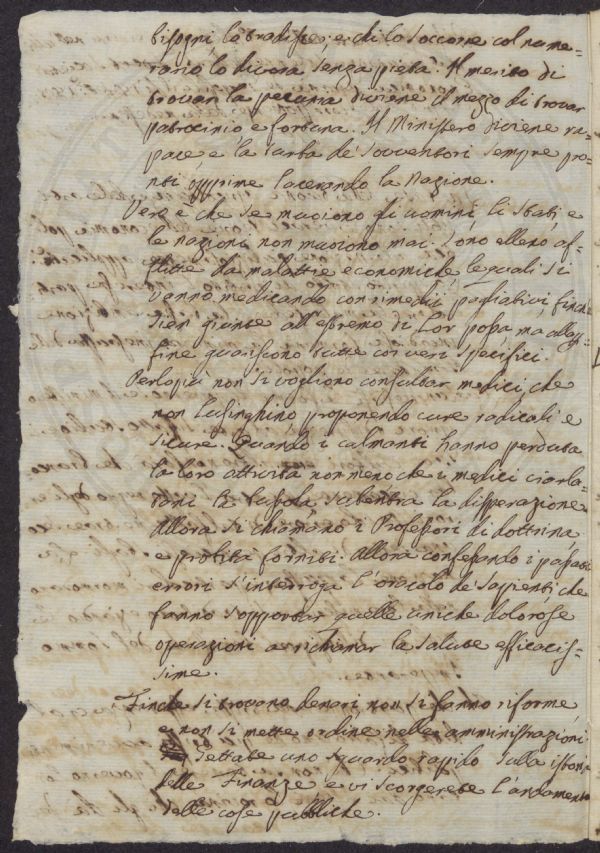 bisogni, lo tradisce; e chi lo soccorre col nume-
rario lo divora senza pietà. Il merito di
trovar la pecunia diviene il mezzo di trovar
patrocinio e fortuna. Il Ministero diviene ra-
pace e la turba de' sovventori sempre pron-
ti opprime lacerando la Nazione.
Vero è che se muoiono gli uomini, li Stati, e
le nazioni non muoiono mai. Sono elleno af-
flitte da malattie economiche, le quali si
vanno medicando con rimedii pagliativi, finchè
sian giunte all'estremo di lor possa, ma alla
fine guariscono tutte coi veri specifici.
Perlopiù non si vogliono consultar medici che
non lusinghino, proponendo cure radicali e
sicure. Quando i calmanti hanno perduta
la loro attività nonmeno che i medici ciarla-
tani la bussola, subentra la disperazione.
Allora si chiamano i Professori di dottrina,
e probità forniti. Allora confessando i passati
errori s'interroga l'oracolo de' sapienti che
fanno sopportar quelle uniche dolorose
operazioni a richiamar la salute efficacis-
sime.
Finchè si trovano denari non si fanno riforme,
e non si mette ordine nelle amministrazioni.
Gettate uno sguardo rapido sulla istoria
delle Finanze e vi scorgerete l'andamento
delle cose pubbliche.